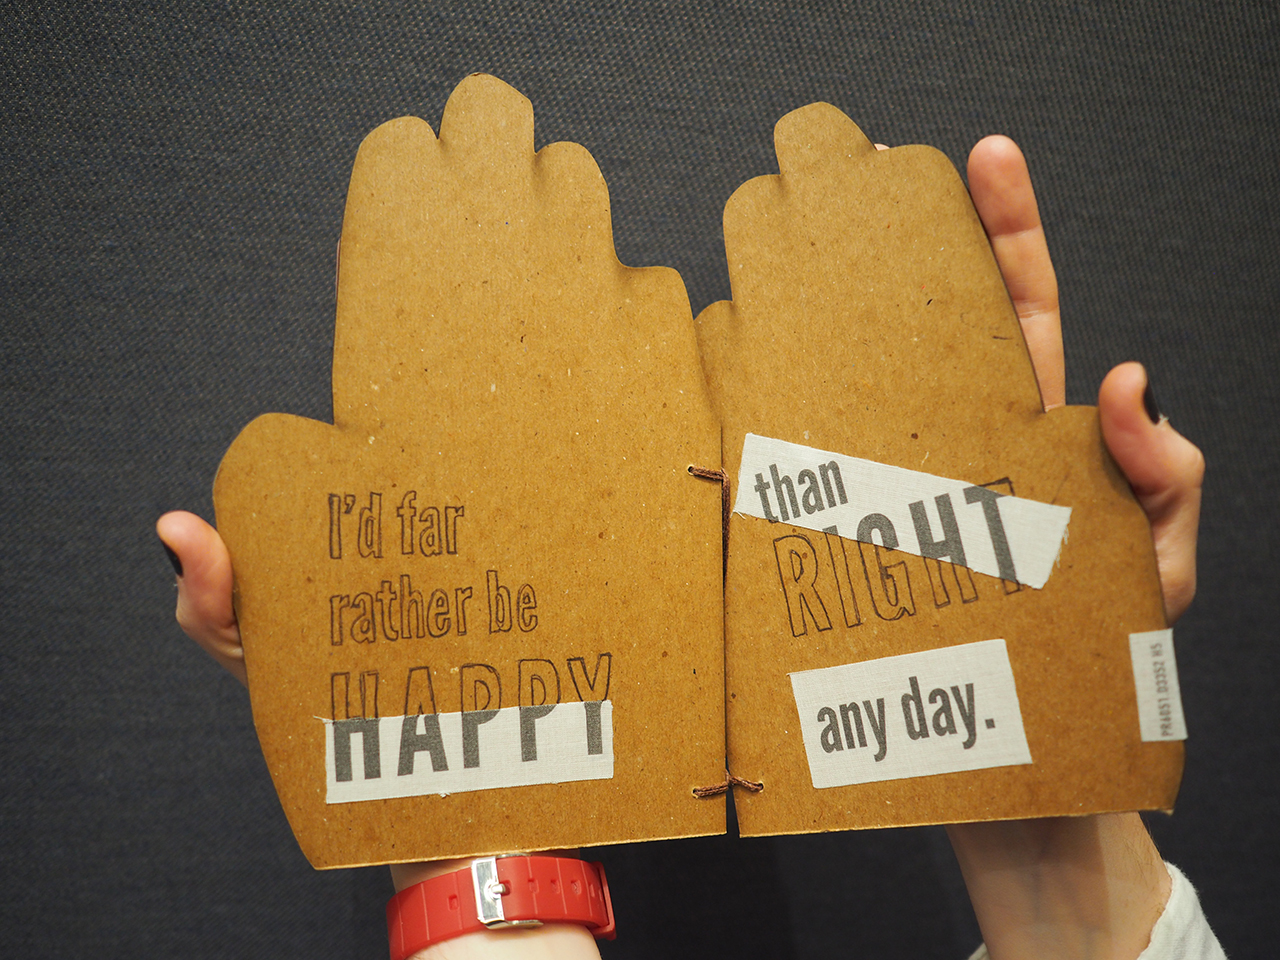 I'd far
rather be
HAPPY
than
RIGHT
any day.
PR6051 D3352 H5